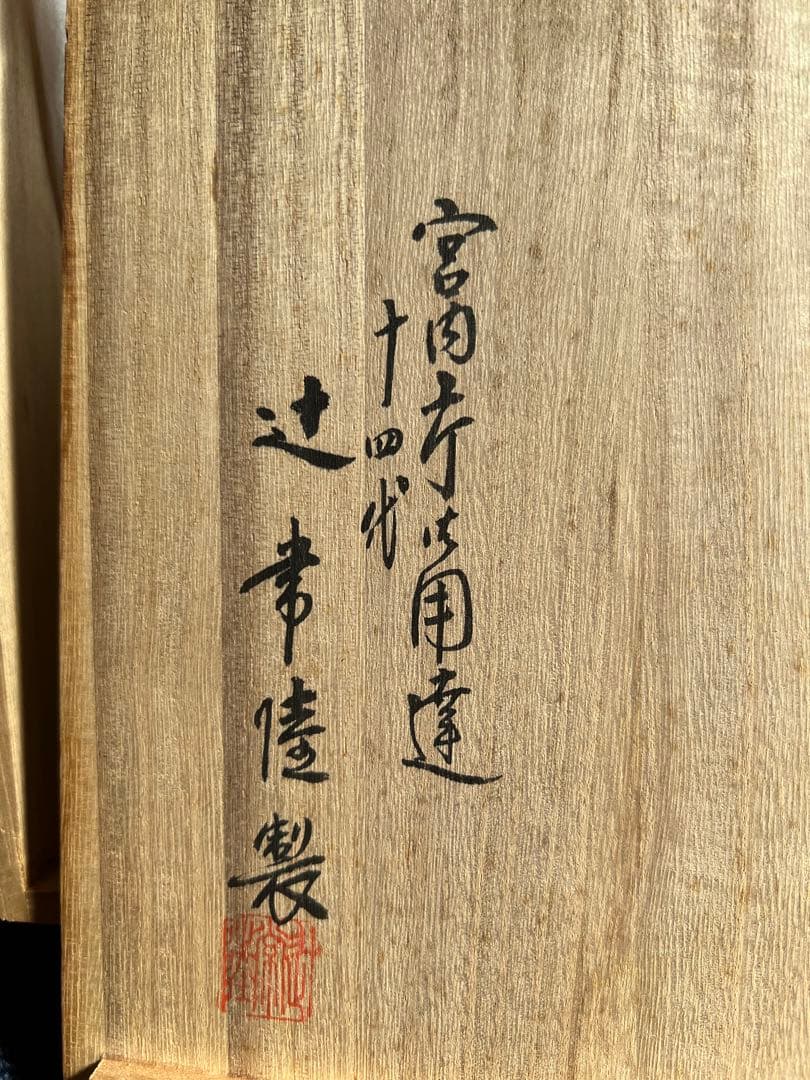 宮内庁御用達
十四代
辻常陸製